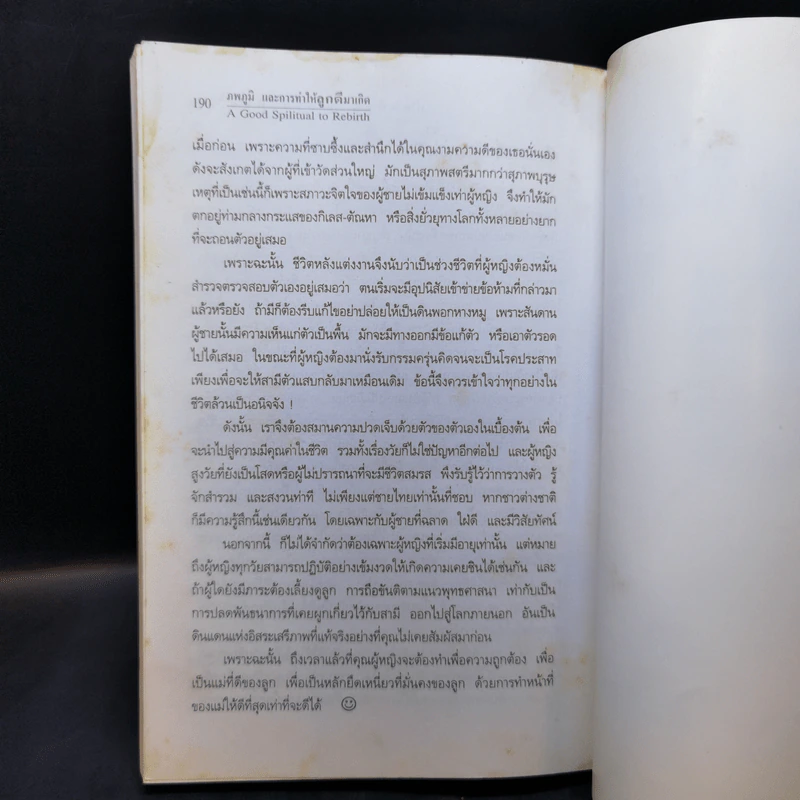 190 ภพภูมิ และการทำให้ลูกดีมาเกิด
A Good Spilitual to Rebirth
เมื่อก่อน เพราะความที่ซาบซึ้งและสำนึกได้ในคุณงามความดีของเธอนั่นเอง
ดังจะสังเกตได้จากผู้ที่เข้าวัดส่วนใหญ่ มักเป็นสุภาพสตรีมากกว่าสุภาพบุรุษ
เหตุที่เป็นเช่นนี้ก็เพราะสภาวะจิตใจของผู้ชายไม่เข้มแข็งเท่าผู้หญิง จึงทำให้มัก
ตกอยู่ท่ามกลางกระแสของกิเลส-ตัณหา หรือสิ่งยั่วยุทางโลกทั้งหลายอย่างยาก
ที่จะถอนตัวอยู่เสมอ
เพราะฉะนั้น ชีวิตหลังแต่งงานจึงนับว่าเป็นช่วงชีวิตที่ผู้หญิงต้องหมั่น
สำรวจตรวจสอบตัวเองอยู่เสมอว่า ตนเริ่มจะมีอุปนิสัยเข้าข่ายข้อห้ามที่กล่าวมา
แล้วหรือยัง ถ้ามีก็ต้องรีบแก้ไขอย่าปล่อยให้เป็นดินพอกหางหมู เพราะสันดาน
ผู้ชายนั้นมีความเห็นแก่ตัวเป็นพื้น มักจะมีทางออกมีข้อแก้ตัว หรือเอาตัวรอด
ไปได้เสมอ ในขณะที่ผู้หญิงต้องมานั่งรับกรรมครุ่นคิดจนจะเป็นโรคประสาท
เพียงเพื่อจะให้สามีตัวแสบกลับมาเหมือนเดิม ข้อนี้จึงควรเข้าใจว่าทุกอย่างใน
ชีวิตล้วนเป็นอนิจจัง !
ดังนั้น เราจึงต้องสมานความปวดเจ็บด้วยตัวของตัวเองในเบื้องต้น เพื่อ
จะนำไปสู่ความมีคุณค่าในชีวิต รวมทั้งเรื่องวัยก็ไม่ใช่ปัญหาอีกต่อไป และผู้หญิง
สูงวัยที่ยังเป็นโสดหรือผู้ไม่ปรารถนาที่จะมีชีวิตสมรส พึงรับรู้ไว้ว่าการวางตัว รู้
จักสำรวม และสงวนท่าที ไม่เพียงแต่ชายไทยเท่านั้นที่ชอบ หากชาวต่างชาติ
ก็มีความรู้สึกนี้เช่นเดียวกัน โดยเฉพาะกับผู้ชายที่ฉลาด ใฝ่ดี และมีวิสัยทัศน์
นอกจากนี้ ก็ไม่ได้จำกัดว่าต้องเฉพาะผู้หญิงที่เริ่มมีอายุเท่านั้น แต่หมาย
ถึงผู้หญิงทุกวัยสามารถปฏิบัติอย่างเข้มงวดให้เกิดความเคยชินได้เช่นกัน และ
ถ้าผู้ใดยังมีภาระต้องเลี้ยงดูลูก การถือขันติตามแนวพุทธศาสนา เท่ากับเป็น
การปลดพันธนาการที่เคยผูกเกี่ยวไว้กับสามี ออกไปสู่โลกภายนอก อันเป็น
ดินแดนแห่งอิสระเสรีภาพที่แท้จริงอย่างที่คุณไม่เคยสัมผัสมาก่อน
เพราะฉะนั้น ถึงเวลาแล้วที่คุณผู้หญิงจะต้องทำเพื่อความถูกต้อง เพื่อ
เป็นแม่ที่ดีของลูก เพื่อเป็นหลักยึดเหนี่ยวที่มั่นคงของลูก ด้วยการทำหน้าที่
ของแม่ให้ดีที่สุดเท่าที่จะดีได้ ☺